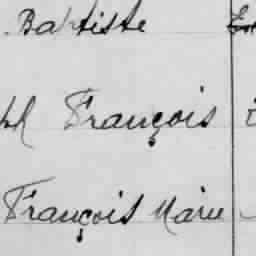 Baptiste
François
François Marie